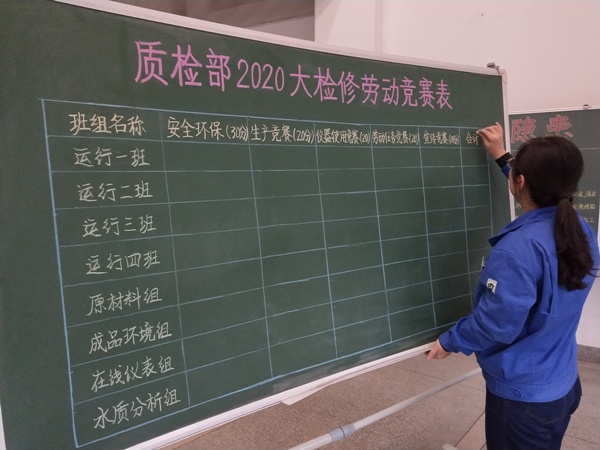 质检部2020大检修劳动竞赛表
班组名称 安全环保(30分) 生产竞赛(20分) 仪器使用竞赛(20) 劳动任务竞赛(20) 宣传竞赛(10分) 合计
运行一班
运行二班
运行三班
运行四班
原材料组
成品环境组
在线仪表组
水质分析组
隐患